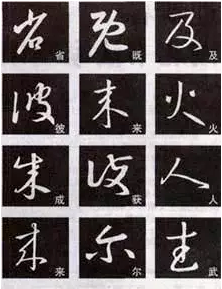 省 既 及
彼 来 火
成 获 人
来 尔 武